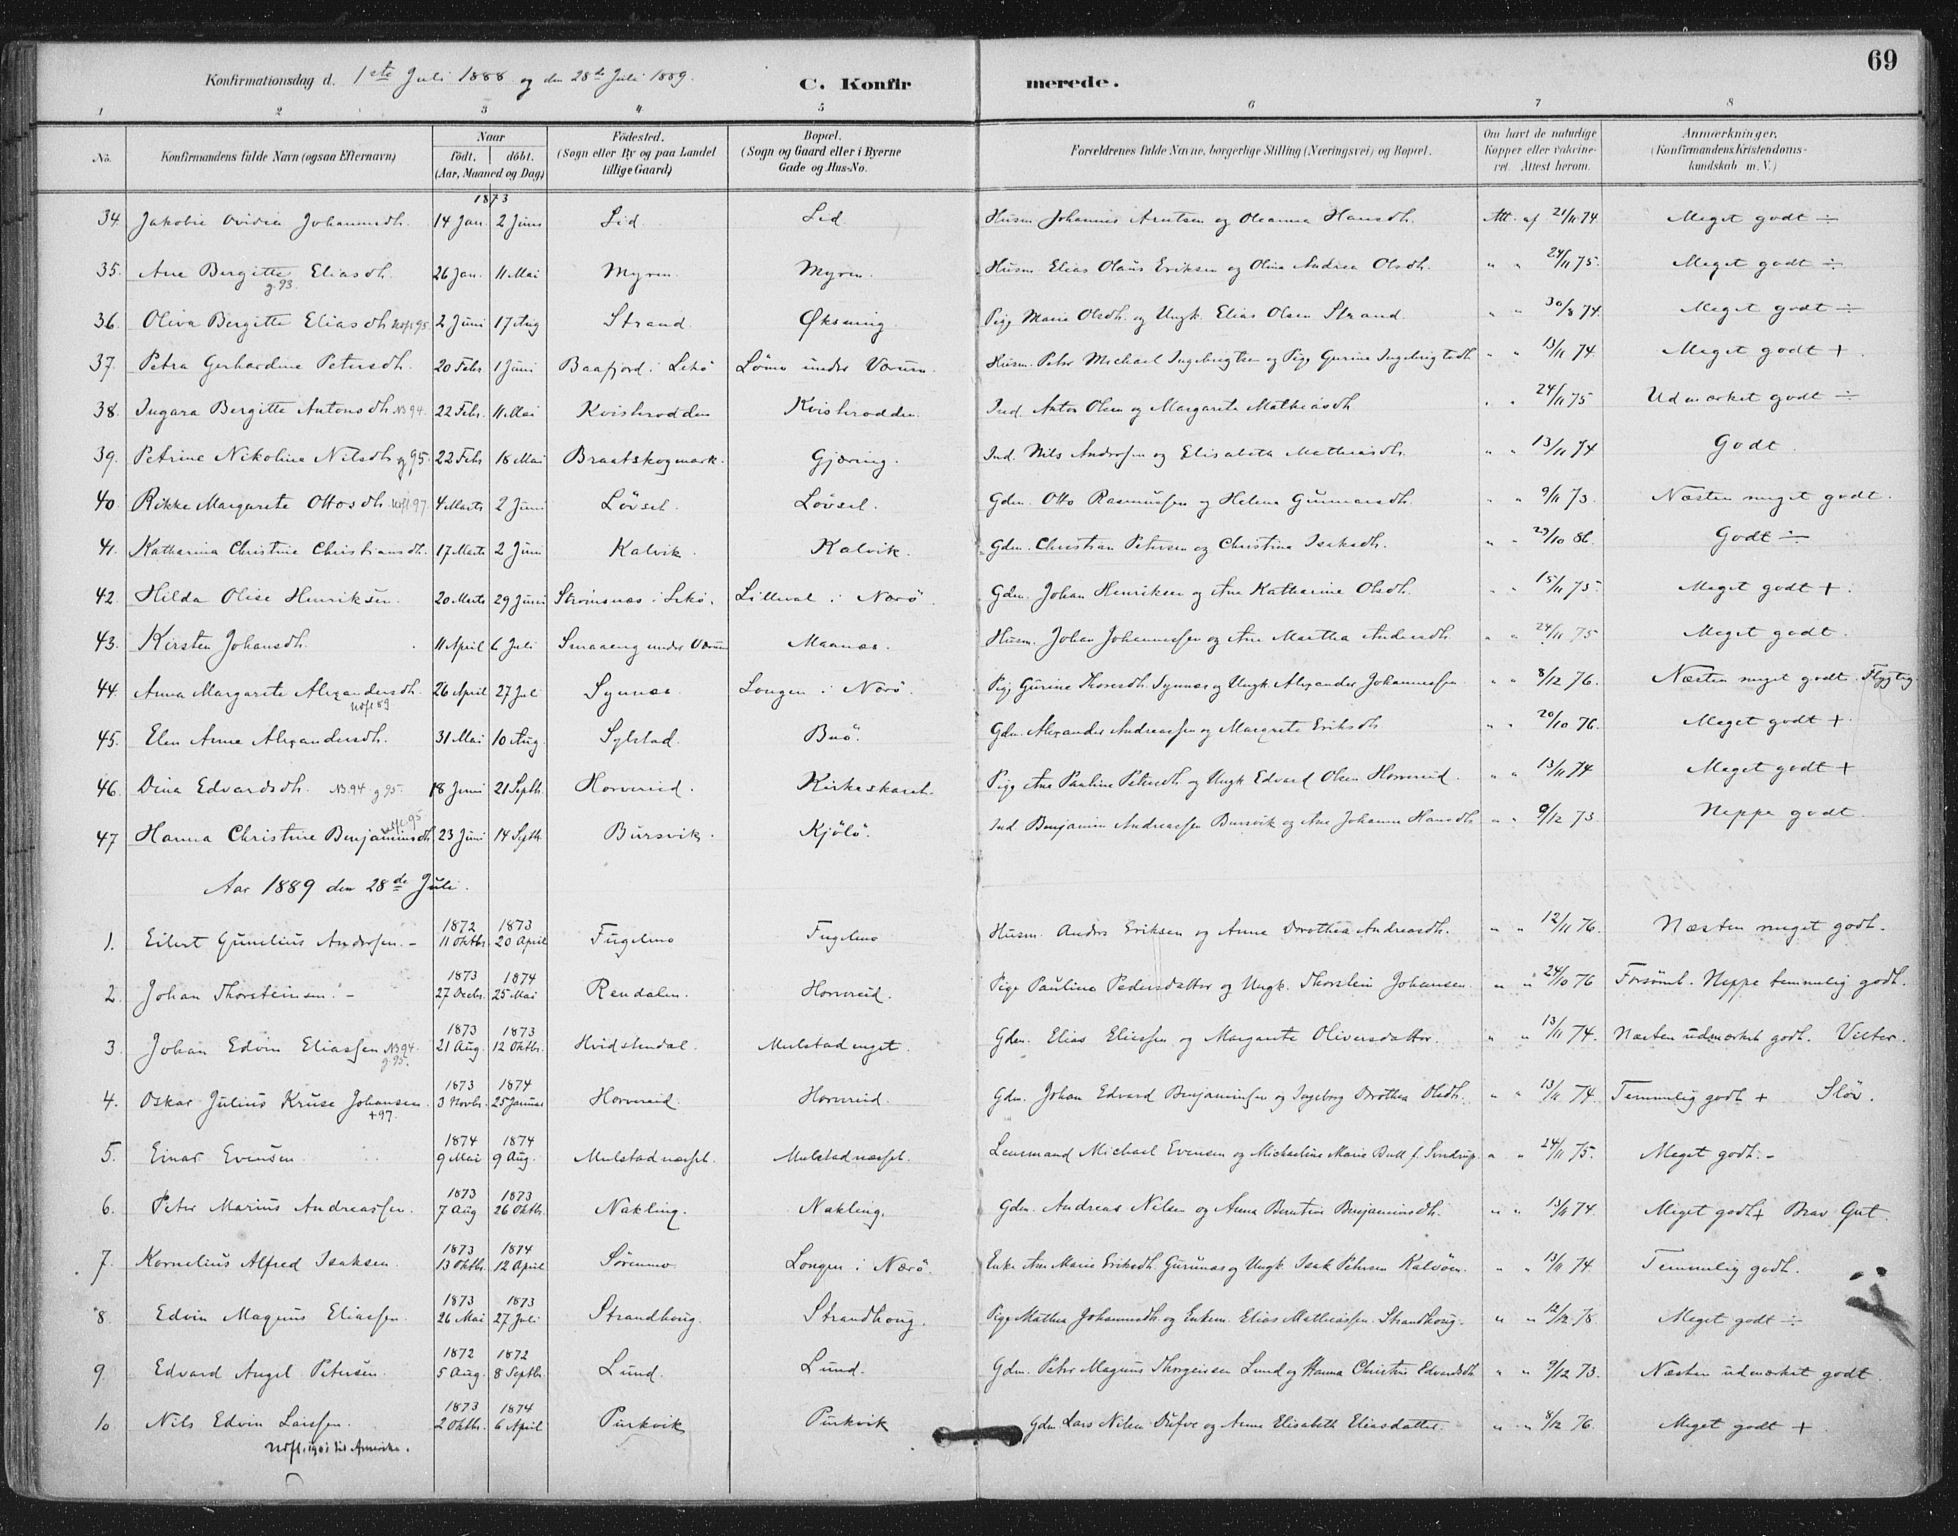 69
Konfirmationsdag d. 1ste Juli 1888 og den 28de Juli 1889. C. Konfirmerede.
1 2 3 4 5 6 7 8
No. Konfirmandens fulde Navn (ogsaa Efternavn) Naar födt. döbt. (Aar, Maaned og Dag) Födested. (Sogn eller By og paa Landet tillige Gaard) Bopæl. (Sogn og Gaard eller i Byerne Gade og Hus-No. Forældrenes fulde Navne, borgerlige Stilling (Næringsvei) og Bopæl. Om havt de naturlige Kopper eller vakcineret. Attest herom. Anmærkninger, (Konfirmandens Kristendomskundskab m. V.)
1873
34. Jakobie Ovidia Johannesdh. 14 Jan. 2 Juni Lid. Lid. Husm. Johannes Arntsen og Oleanna Hansdh. Att. af 21/11 74. Meget godt ÷
35. Ane Bergitte Eliasdh. g. 93. 26 Jan. 11 Mai Myren. Myren. Husm. Elias Olaus Eriksen og Olina Andrea Olsdh. " " 24/11 75. Meget godt ÷
36. Oliva Bergitte Eliasdh. Udfl 95. 2 Juni 17 Aug Strand. Øksning. Pige Marie Olsdh. og Ungk. Elias Olsen Strand. " " 30/8 74. Meget godt ÷
37. Petra Gerhardine Petersdh. 20 Febr. 1 Juni Baafjord i Lekö Lömo under Værum. Husm. Peter Michael Ingebrigtsen og Pige Gurine Ingebrigtsdh. " " 13/11 74. Meget godt +.
38. Ingara Bergitte Antonsdh. N3 94. 22 Febr. 11 Mai Kvistrodden Kvistrodden. Ind. Anton Olsen og Margarete Mathiasdh " " 24/11 75 Udmærket godt ÷
39. Petrine Nikoline Nilsdh. g 95. 22 Febr 18 Mai Braatskogmark. Gjæring. Ind. Nils Andersen og Elisabeta Mathiasdh. " " 13/11 74 Godt.
40. Rikke Margarete Ottosdh. Udfl 97. 4 Marts 2 Juni Lövsel. Lövsel. Gdm. Otto Rasmussen og Helena Gunnarsdh. " " 9/11 73. Næsten meget godt.
41. Katharina Christine Christiansdh. 17 Marts 2 Juni Kalvik. Kalvik. Gdm. Christian Petersen og Christina Isaksdh. " " 29/10 86. Godt ÷
42. Hilda Olise Henriksen. 20 Marts 29 Juni Steinsnæs i Lekö. Lilleval i Nærö. Gdm. Johan Henriksen og Ane Katharine Olsdh. " " 15/11 75. Meget godt +.
43. Kirsten Johansdh. 11 April 6 Juli Smaaeng under Værum Maanæs. Husm. Johan Johannessen og Ane Martha Andersdh. " " 24/11 75 Meget godt.
44. Anna Margarete Alexandersdh. Udfl 89 26 April 27 Jul Synnæs Longen i Nærö. Pige Gurine Thoresdh. Synnæs og Ungk. Alexander Johannessen " " 8/12 76. Næsten meget godt. Flygtig.
45. Elen Anne Alexandersdh. 31 Mai 10 Aug. Sylstad. Buö. Gdm. Alexander Andreassen og Margrete Eriksdh " " 20/10 76. Meget godt +.
46. Dina Edvardsdh. N3 94 g 95. 18 Juni 21 Septb. Horvereid. Kirkeskaret. Pige Ane Pauline Petersdh. og Ungk Edvard Olsen Horvereid. " " 13/11 74 Meget godt +
47 Hanna Christine Benjaminsdh Udfl 95 23 Juni 14 Septb. Bursvik. Kjölö. Ind Benjamin Andreassen Bursvik og Ane Johanna Hansdh " " 9/12 73. Neppe godt.
Aar 1889 den 28de Juli.
1. Eilert Gunelius Andersen. - 1872 11 Oktbr. 1873 20 April Fuglemo Fuglemo Husm. Anders Eriksen og Anne Dorothea Andreasdh. " " 12/11 76. Næsten meget godt.
2. Johan Thorsteinsen. - 1873 27 Decbr. 1874 25 Mai Rendalen. Horvereid. Pige Paulina Pedersdatter og Ungk. Thorstein Johansen. " " 24/10 76 Forsömt. Neppe temmelig godt.
3. Johan Edvin Eliassen N3 94. g. 95. 1873 21 Aug. 1873 12 Oktbr. Hvidstendal. Mulstadenget. Gdm. Elias Eliassen og Margarete Oliversdatter. " " 13/11 74. Næsten udmærket godt. Vilter.
4. Oskar Julius Kruse Johansen +97 1873 3 Novbr. 1874 25 Januar Horvereid. Horvereid. Gdm. Johan Edvard Benjaminsen og Ingeborg Dorothea Olsdh. " " 13/11 74. Temmelig godt + Slöv.
5. Einar Evensen 1874 9 Mai 1874 9 Aug. Mulstadnæsset. Mulstadnæsset. Lensmand Michael Evensen og Michaeline Marie Bull f. Sendrup " " 24/11 75. Meget godt. -
6. Peter Marius Andreassen. 1873 7 Aug 1873 26 Oktbr. Nakling. Nakling. Gdm. Andreas Nilsen og Anna Berntine Benjaminsdh. " " 13/11 74. Meget godt + Brav Gut.
7. Kornelius Alfred Isaksen. 1873 13 Oktbr. 1874 12 April Sörenmo. Longen i Nærö. Enke Ane Marie Eriksdh. Gurunæs og Ungk. Isak Petersen Kalvöen. " " 13/11 74. Temmelig godt.
8. Edvin Magnus Eliassen. 1873 26 Mai 1873 27 Juli Strandhoug. Strandhoug. Pige Mathea Johannesdh. og Enkem. Elias Mathiassen Strandhoug. " " 12/2 78. Meget godt ÷
9 Edvard Angel Petersen. 1872 5 Aug. 1872 8 Septbr. Lund. Lund. Gdm. Peter Magnus Thorgersen Lund og Hanna Christine Edvardsdh " " 9/12 73. Næsten udmærket godt
10 Nils Edvin Larssen. 1873 2 Oktbr. 1874 6 April Purkvik Purkvik Gdm Lars Nilsen Dufve og Anne Elisabeth Eliasdatter. " " 8/12 76. Meget godt +
Udfl. 1901 til Amerika.